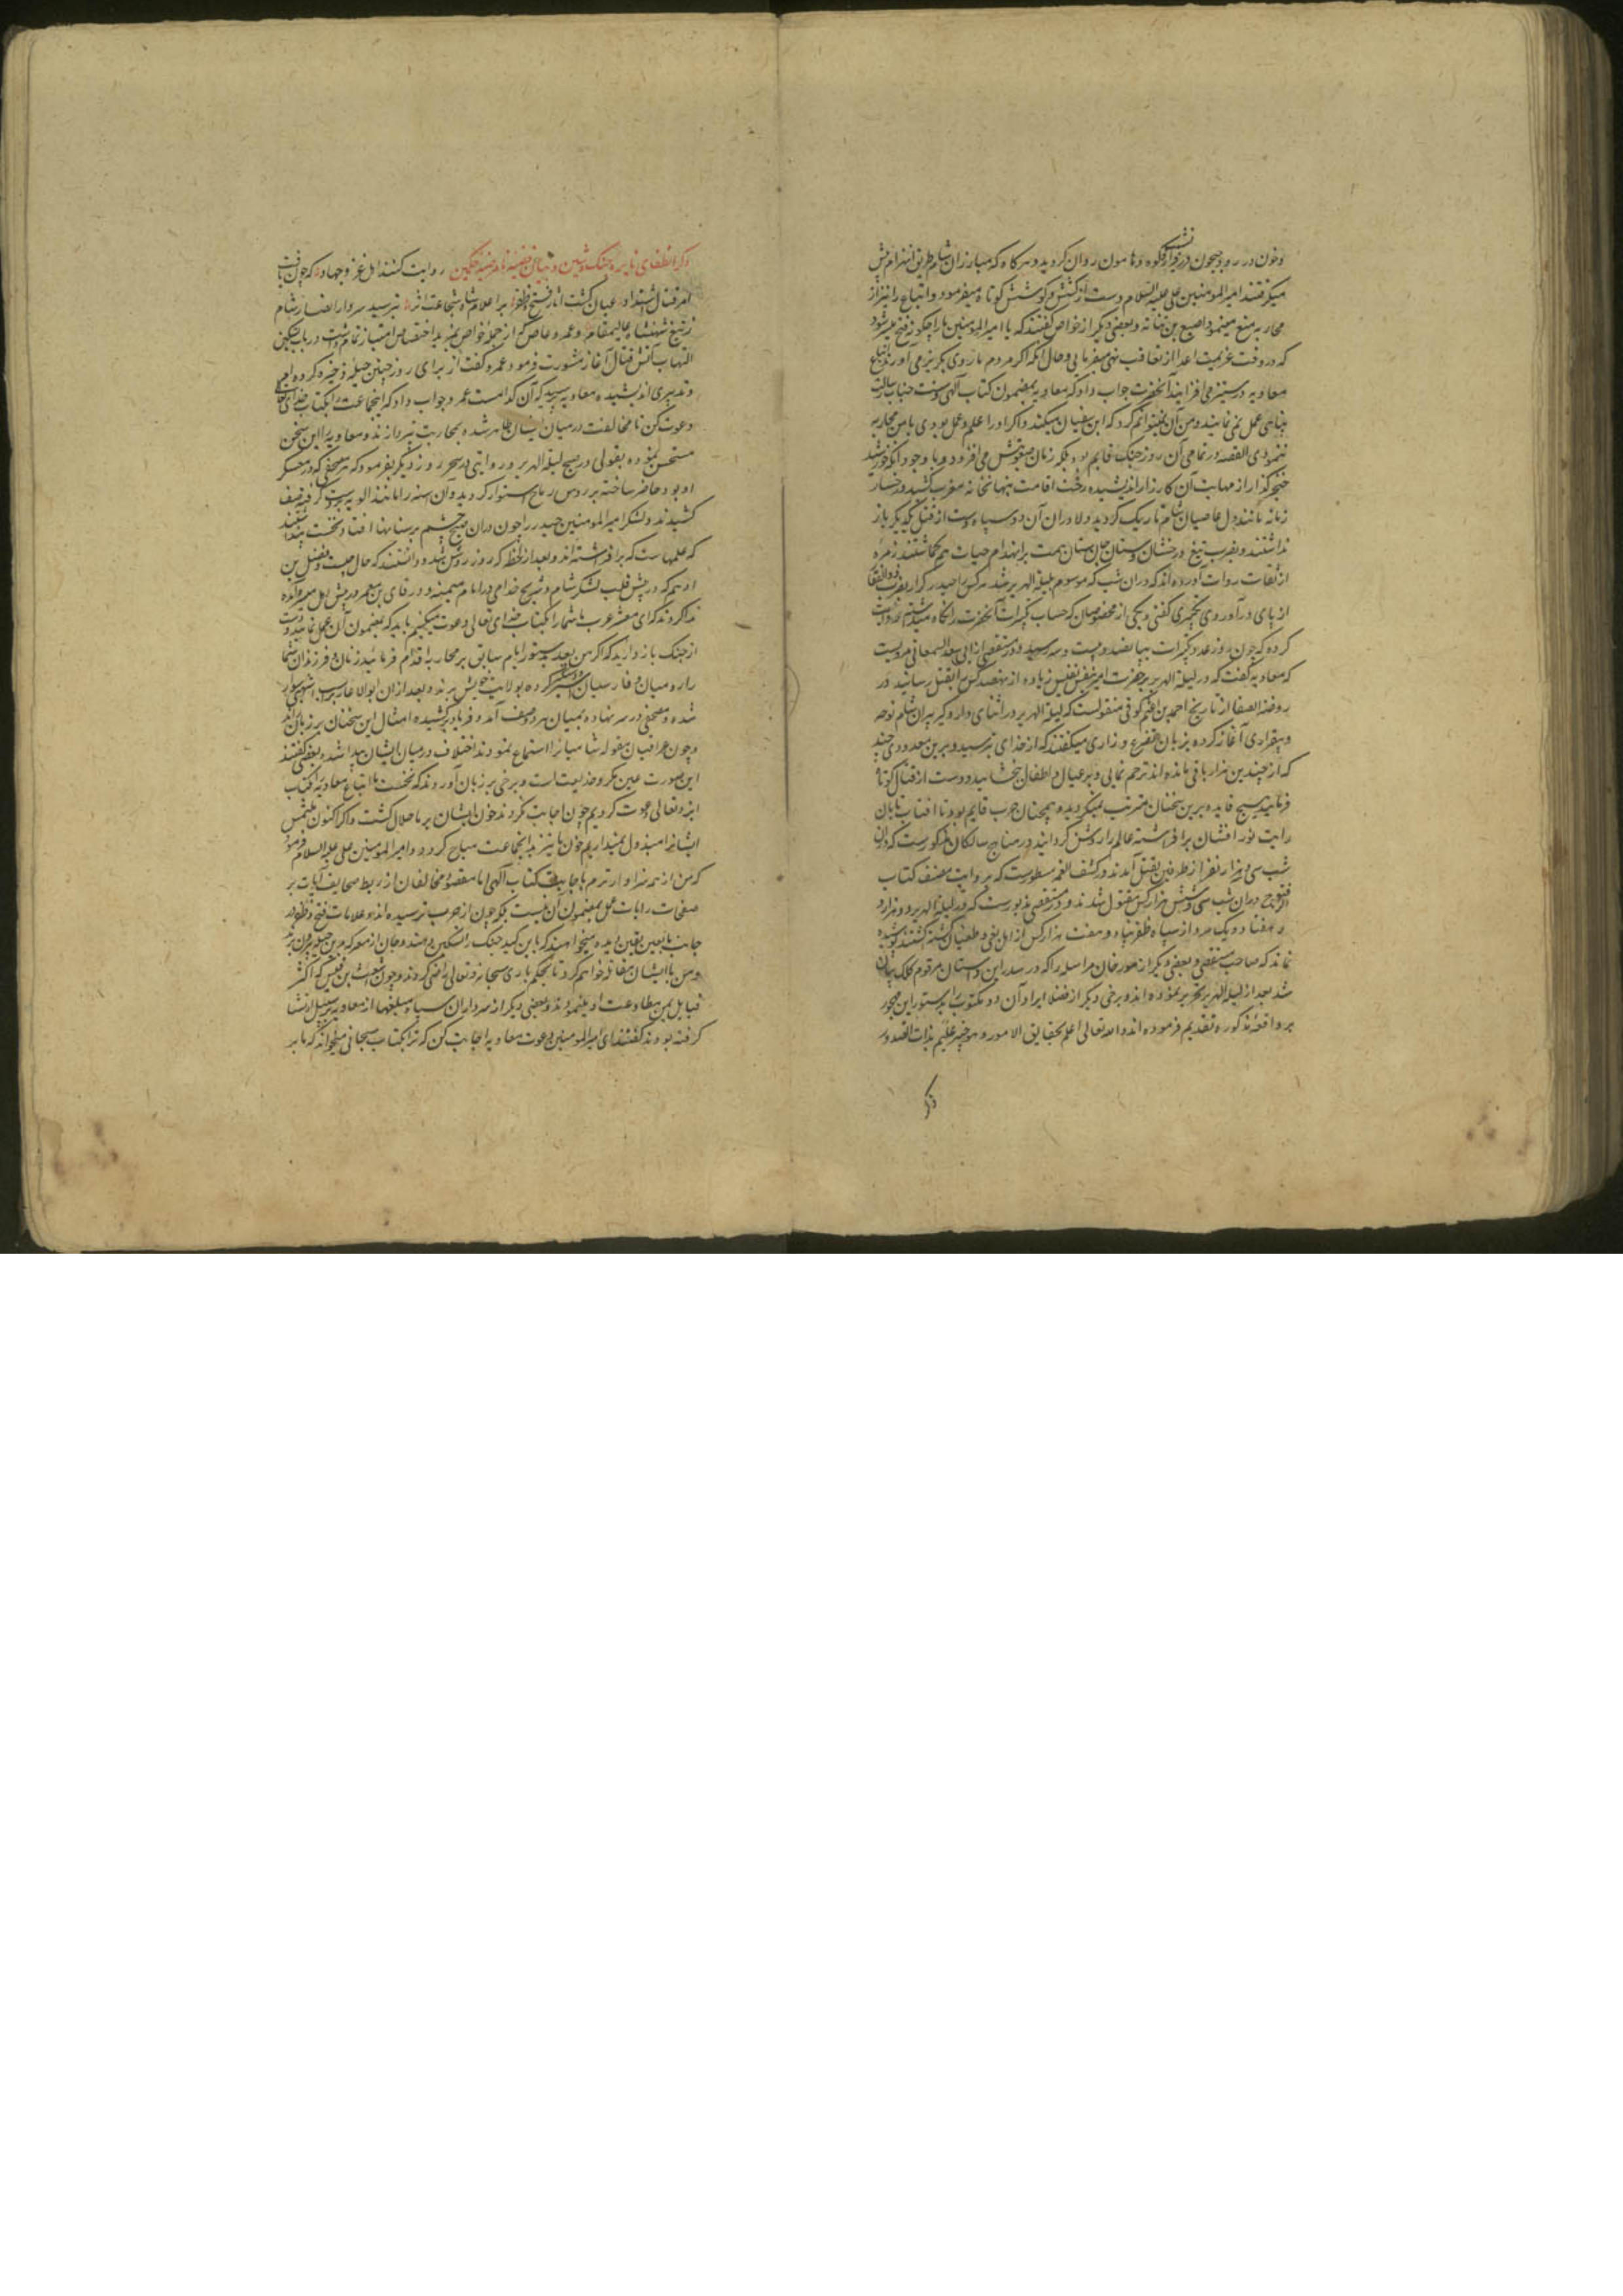 وخون در رود جیحون در فراز کوه و هامون روان کردید و هر کاه که مبارزان شام طریق انهزام پیش
میکرفتند امیرالمومنین علی علیه السلام دست از کشش و کوشش کوتاه میفرمود و اتباع را نیز از
محاربه منع مینمود اصبغ بن نباته و بعضی دیکر از خواص کفتند که یا امیرالمومنین ما را چکونه فتح میسر شود
که در وقت عزیمت اعدا از تعاقب نهی میفرمایی و حال آنکه اکر مردم ما روی بکریز می آورند اتباع
معاویه در ستیز می افزایند آنحضرت جواب داد که معاویه بمضمون کتاب الهی و سنت جناب رسالت
پناهی عمل نمی نماید و من آن نمیتوانم کرد که ابن سفیان میکند و اکر او را علم و عمل بودی با من محاربه
ننمودی القصه در تمامی آن روز جنک قایم بود بلکه زمان زمان می افزود و با وجود آنکه خورشید
خنجر کذار از مهابت آن کارزار اندیشیده رخت اقامت بنهانخانه مغرب کشید و رخسار
زمانه مانند دل عاصیان شام تاریک کردید دلاوران آن دو سپاه دست از قتل یکدیکر باز
نداشتند و بضرب تیغ درخشان و سنان جان ستان همت بر انهدام حیات هم کماشتند زمره
از ثقات روات آورده اند که در آن شب که موسوم بلیلة الهریر شد هر کس را حیدر کرار بضرب ذوالفقار
از پای در آوردی تکبیری کفتی و یکی از مخصوصان که حساب تکبیرات آنحضرت را نکاه میداشت روایت
کرده که چون روز شد تکبیرات بپانصد و بیست و سه رسید و در مقصد اقصی از ابی سعد السمعانی مرویست
که معاویه کفت که در لیلة الهریر حضرت امیر بنفس نفیس زیاده از نهصد کس را بقتل رسانید و در
روضة الصفا از تاریخ احمد بن اعثم کوفی منقولست که لیلة الهریر در اثنای دار و کیر پیران شام نوحه
و بیقراری آغاز کرده بزبان تضرع و زاری میکفتند که از خدای بترسید و برین معدودی چند
که از چندین هزار باقی مانده اند ترحم نمایی و بر عیال و اطفال ببخشایید و دست از قتال کوتاه
فرمایید هیچ فایده برین سخنان مترتب نمیکردید و همچنان حرب قایم بود تا آفتاب تابان
رایت نور افشان بر افراشته عالم را روشن کردانید در منهاج سالکان مذکورست که در آن
شب سی و هزار نفر از طرفین بقتل آمدند و در کشف الغمه مسطورست که بروایت مصنف کتاب
الفتوح در آن شب سی و شش هزار کس مقتول شدند و در مستقصی مزبورست که در لیلة الهریر دو هزار و
و هفتاد و یک مرد از سپاه ظفر پناه و هفت هزار کس از اهل بغی و طغیان کشته کشتند پوشیده
نماند که صاحب مستقصی و بعضی دیکر از مورخان مراسله را که در صدر این داستان مرقوم کلک بیان
شد بعد از لیلة الهریر تحریر نموده اند و برخی دیکر از فضلا ایراد آن دو مکتوب را بدستور این مجرر
بر واقعه مذکوره تقدیم فرموده اند والله تعالی اعلم بحقایق الامور و هو خبیر علیم بذات الصدور
ذکر
ذکر انطفای نایره جنک صفین و بیان قضیه نامرضیه حکمین روایت کنند اهل غزو جهاد که چون یافت
امر قتال اشتداد عیان کشت آثار فتح و ظفر بر اعلام شاه شجاعت اثر بترسید سردار انصار شام
ز تیغ شهنشاه عالیمقام و عمرو عاص که از جمله خواص بمزید اختصاص امتیاز تمام داشت در باب تسکین
التهاب آتش قتال آغاز مشورت فرمود عمرو کفت از برای روز چنین حیله ذخیره کرده ام
و تدبیری اندیشیده معاویه پرسید که آن کدامست عمرو جواب داد که آنجماعت را بکتاب خدای تعالی
دعوت کن تا مخالفت در میان ایشان ظاهر شده بمحاربت نپردازند و معاویه را این سخن
مستحسن نموده بقولی در صبح لیلة الهریر و روایتی در سحر روز دیکر بفرمود که هر مصحفی که در معسکر
او بود حاضر ساخته بر رؤس رماح استوار کردند و آن سنه را مانند الویه بر دست کرفته صف
کشیدند و لشکر امیرالمومنین حیدر را چون در آن صبح چشم بر سنانها افتاد نخست پنداشتند
که علمهاست که بر افراشته اند و بعد از لحظه که روز روشن شد دانستند که حال چیست و فضل بن
ادهم که در پیش قلب لشکر شام و شریح خدامی در امام میمنه و ورقای بن معمر در پیش اهل میسره آمده
ندا کردند که ای معشر عرب ما شما را بکتاب خدای تعالی دعوت میکنیم باید که بمضمون آن عمل نمایید و دست
از جنک باز دارید که اکر من بعد بدستور ایام سابق بر محاربه اقدام فرمایید زنان و فرزندان شما
را رومیان و فارسیان اسیر کرده بولایت خویش برند و بعد از آن ابوالاعور بر اسب اشهبی سوار
شده و مصحفی بر سر نهاده بمیان هر دو صف آمد و فریاد بر کشیده امثال این سخنان بر زبان راند
و چون عراقیان مقوله شامیان را استماع نمودند اختلاف در میان ایشان پیدا شد و بعضی کفتند
این صورت عین مکر و خدیعت است و برخی بر زبان آوردند که نخست ما اتباع معاویه را بکتاب
ایزد تعالی دعوت کردیم چون اجابت نکردند خون ایشان بر ما حلال کشت و اکر اکنون ملتمس
ایشانرا مبذول نمیداریم خون ما نیز بر آنجماعت مباح کردد و امیرالمومنین علی علیه السلام فرمود
که من از همه سزاوارترم باجابت کتاب الهی اما مقصود مخالفان از ربط صحایف آیات بر
صفحات رایات عمل بمضمون آن نیست بلکه چون از حرب ترسیده اند و علامات فتح و ظفر در
جانب ما بعین یقین دیده میخواهند که باین کید جنک را تسکین دهند و جان از معرکه برین حیله بیرون برند
و من با ایشان مقاتله خواهم کرد تا بحکم باری سبحانه و تعالی راضی کردند و چون اشعث بن قیس که اکثر
قبایل یمن مطاوعت او مینمودند و بعضی دیکر از سرداران سپاه مبلغها از معاویه بر سبیل ارتشا
کرفته بودند کفتند ای امیرالمومنین دعوت معاویه را اجابت کن که ترا بکتاب سبحانی میخواند که ما بر